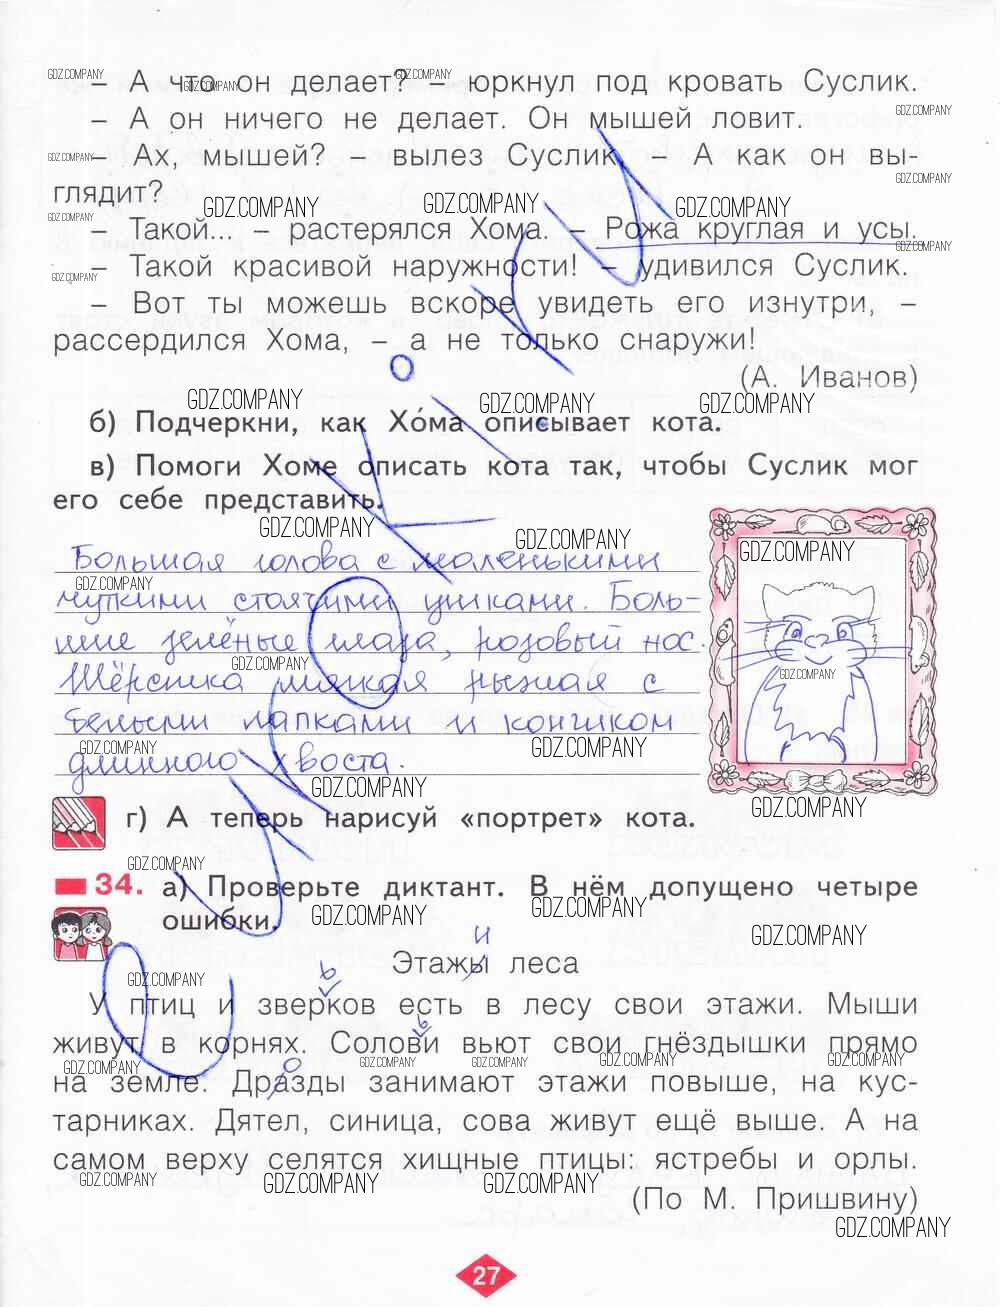 – А что он делает? – юркнул под кровать Суслик.
– А он ничего не делает. Он мышей ловит.
– Ах, мышей? – вылез Суслик, – А как он вы-
глядит?
– Такой... – растерялся Хома. – Рожа круглая и усы.
– Такой красивой наружности! – удивился Суслик.
– Вот ты можешь вскоре увидеть его изнутри, –
рассердился Хома, – а не только снаружи!
(А. Иванов)
б) Подчеркни, как Хо́ма описывает кота.
в) Помоги Хоме описать кота так, чтобы Суслик мог
его себе представить.
Большая голова с маленькими
чуткими стоячими ушками. Боль-
шие зелёные глаза, розовый нос.
Шёрстка мягкая рыжая с
белыми лапками и кончиком
длинного хвоста.
г) А теперь нарисуй «портрет» кота.
34. а) Проверьте диктант. В нём допущено четыре
ошибки.
и
Этажы леса
ь
У птиц и зверков есть в лесу свои этажи. Мыши
ь
живут в корнях. Солови вьют свои гнёздышки прямо
о
на земле. Дразды занимают этажи повыше, на кус-
тарниках. Дятел, синица, сова живут ещё выше. А на
самом верху селятся хищные птицы: ястребы и орлы.
(По М. Пришвину)
27
GDZ.COMPANY
euroki.ru